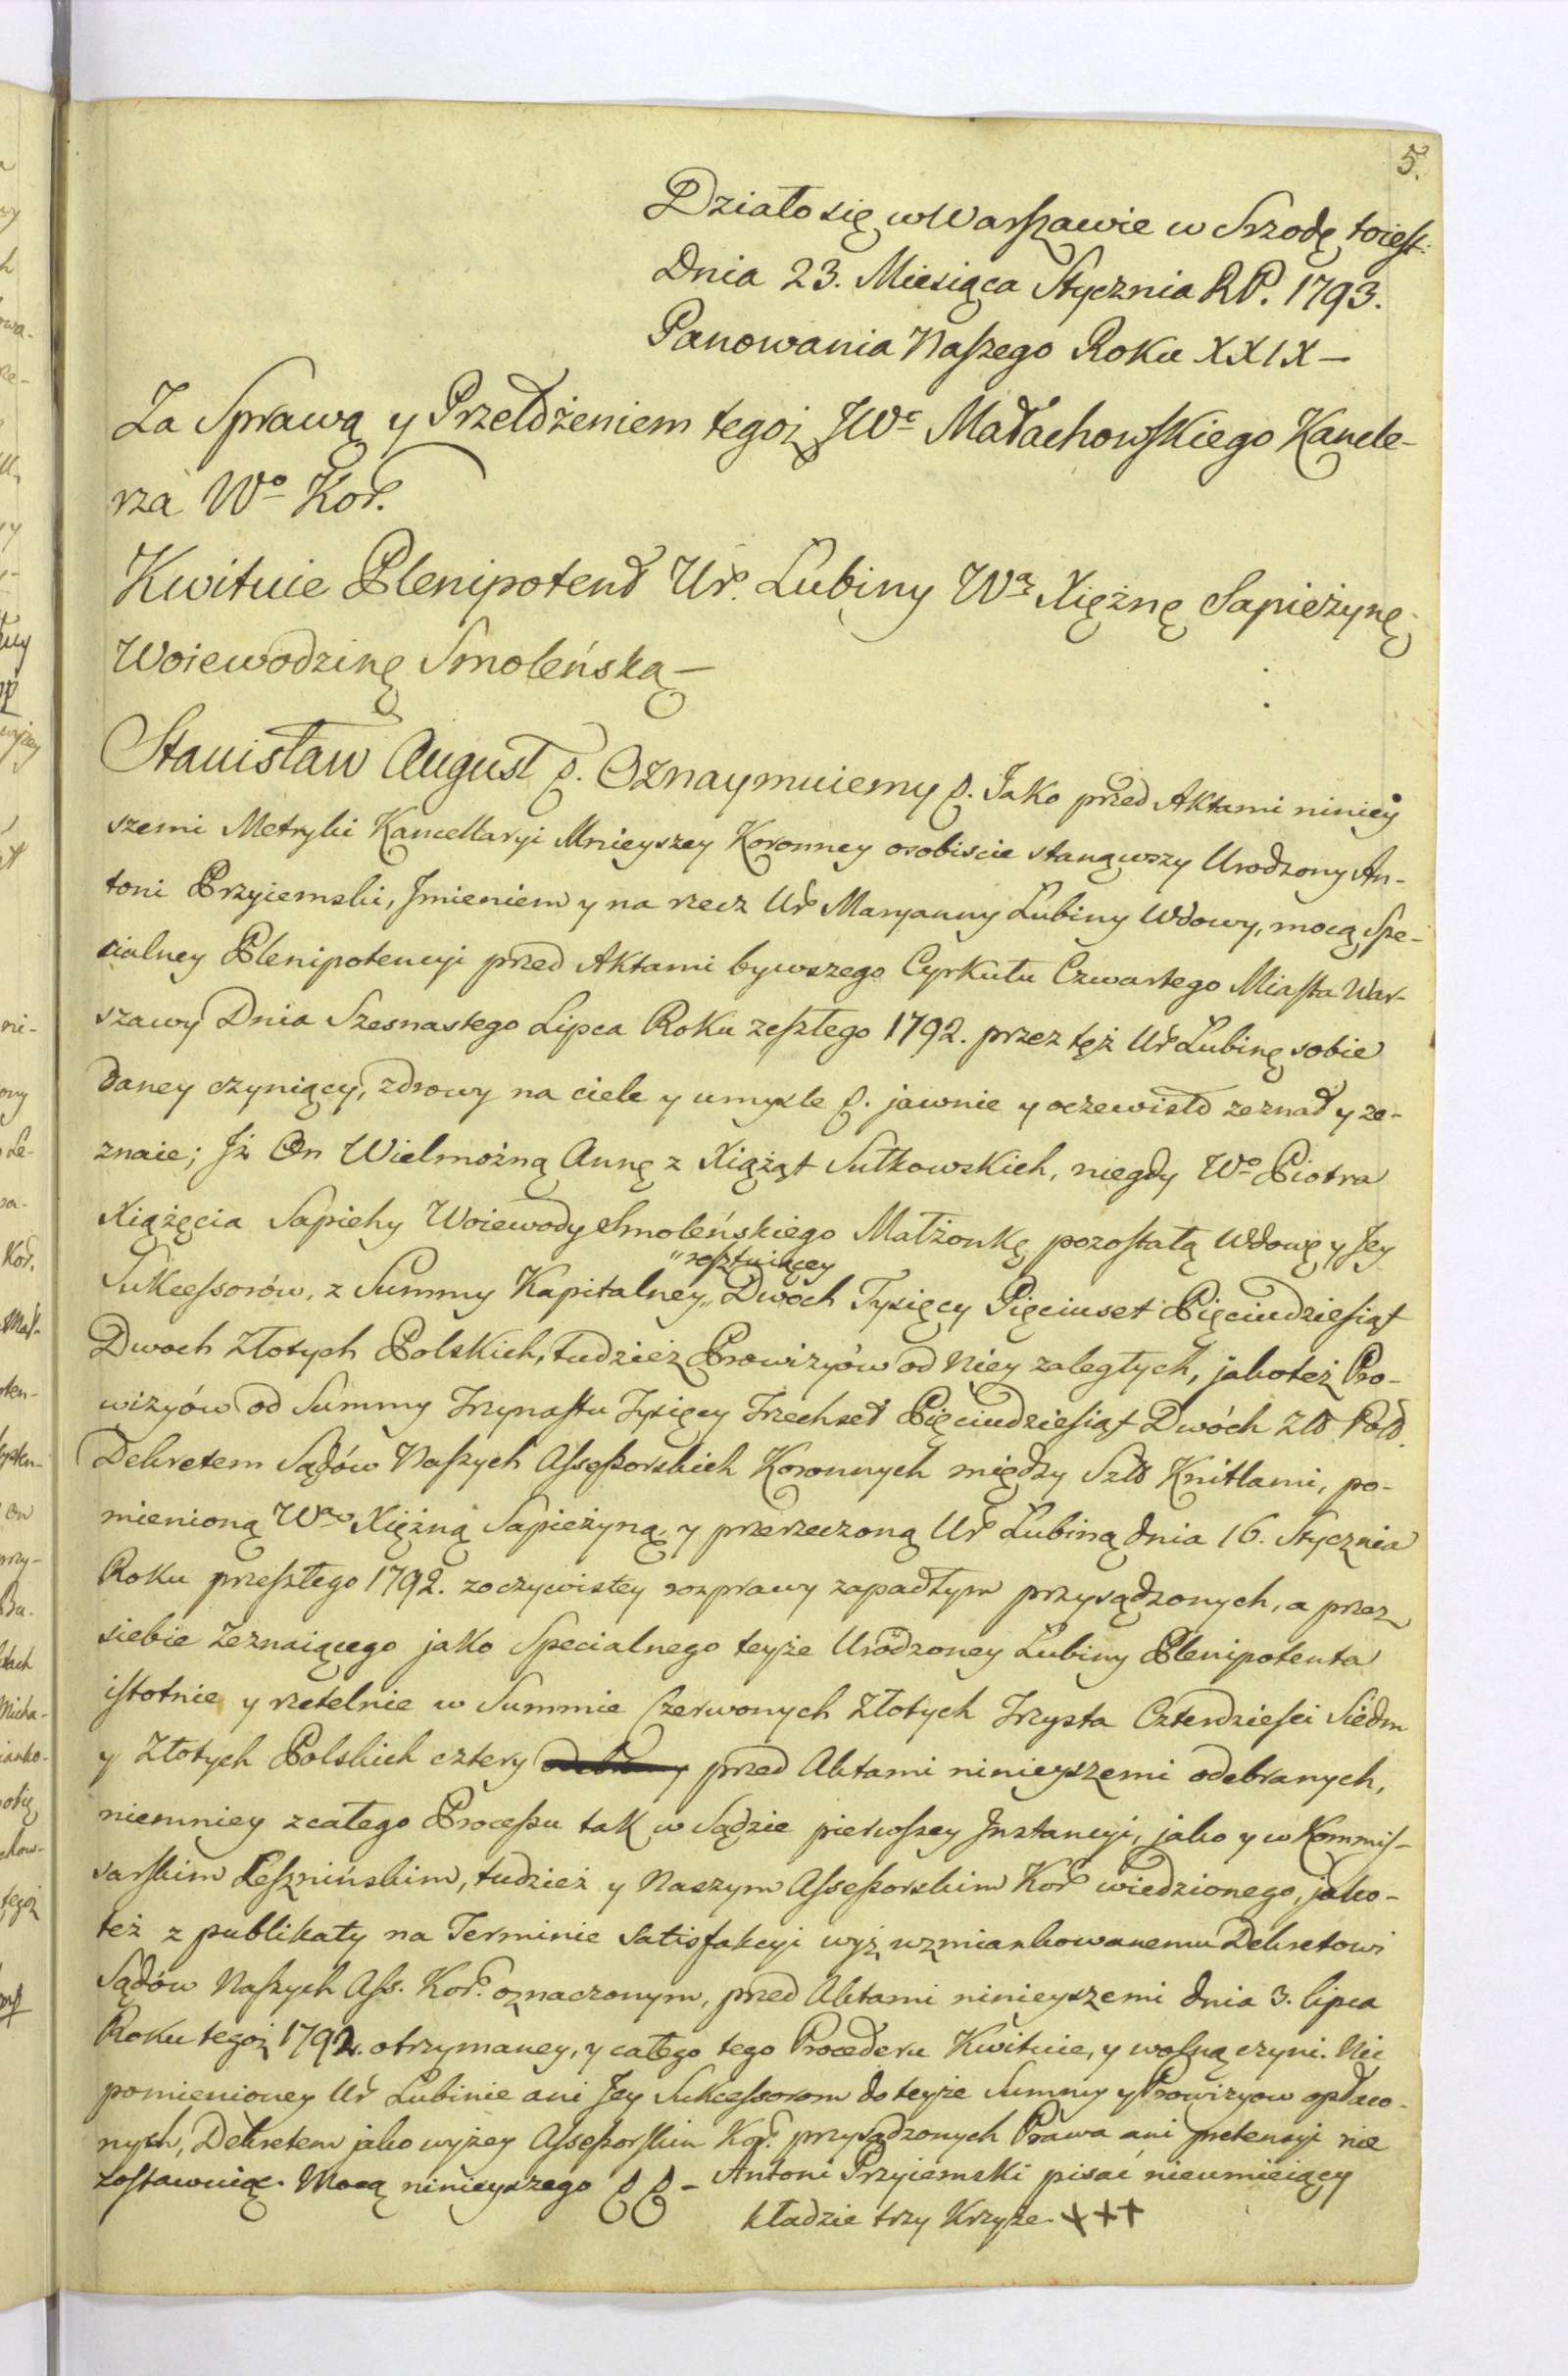 5.
Działo się w Warszawie w Srzodę toiest:
Dnia 23. Miesiąca Stycznia RP. 1793.
Panowania Naszego Roku XXIX –
Za Sprawą y Przełożeniem tegoż JWo Małachowskiego Kancle-
rza Wo Kor.
Kwituie Plenipotent Ur. Lubiny Wą Xiężnę Sapieżynę
Woiewodzinę Smoleńską –
Stanisław August &. Oznaymuiemy &. Jako przed Aktami niniey
szemi Metryki Kancellaryi Mnieyszey Koronney osobiscie stanąwszy Urodzony An-
toni Przyiemski, Jmieniem y na rzecz Ur Maryanny Lubiny Wdowy, mocą Spe-
cialney Plenipotencyi przed Aktami bywszego Cyrkułu Czwartego Miasta War-
szawy Dnia Szesnastego Lipca Roku zeszłego 1792. przez tęż Ur Lubinę sobie
daney czyniący, zdrowy na ciele y umysle &. jawnie y oczewisto zeznał y ze-
znaie; Jż On Wielmożną Annę z Xiążąt Sułkowskich, niegdy Wo Piotra
Xiążęcia Sapiehy Woiewody Smoleńskiego Małżonkę pozostałą Wdowę y Jey
"resztuiącey
Sukcessorów, z Summy Kapitalney,, Dwóch Tysięcy Pięciuset Pięciudziesiąt
Dwoch Złotych Polskich, tudzież Prowizyów od Niey zaległych, jakoteż Pro-
wizyów od Summy Trzynastu Tysięcy Trzechset Pięciudziesiąt Dwóch Zło Pol.
Dekretem Sądów Naszych Assessorskich Koronnych między Szl Knitlami, po-
mienioną Wą Xiężną Sapieżyną, y przerzeczoną Ur Lubiną dnia 16. Stycznia
Roku przeszłego 1792. zoczywistey rozprawy zapadłym przysądzonych, a przez
siebie Zeznaiącego jako Specialnego teyże Urodzoney Lubiny Plenipotenta
istotnie y rzetelnie w Summie Czerwonych Złotych Trzysta Czterdziesci Siedm
y Złotych Polskich cztery przed Aktami ninieyszemi odebranych,
niemniey zcałego Processu tak w Sądzie pierwszey Jnstancyi, jako y w Kommis-
sarskim Leszninskim, tudzież y Naszym Assessorskim Kor wiedzionego, jako-
też z publikaty na Terminie Satisfakcyi wyż wzmiankowanemu Dekretowi
Sądów Naszych Ass. Kor. oznaczonym, przed Aktami ninieyszemi dnia 3. lipca
Roku tegoż 1792. otrzymaney, y całego tego Procederu Kwituie, y wolną czyni. Nic
pomienioney Ur Lubinie ani Jey Sukcessorom do teyże Summy y Prowizyow opłaco-
nych, Dekretem jako wyżey Assessorskim Kor. przysądzonych Prawa ani pretensyi nie
zostawuiąc. Mocą ninieyszego && – Antoni Przyiemski pisać nieumieiący
kładzie trzy Krzyże +++